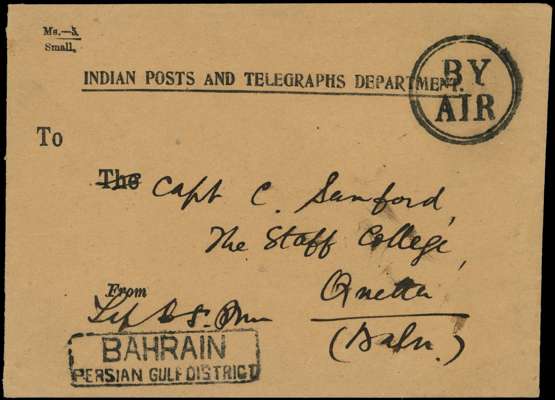 Ms.—5.
Small.
BY
AIR
INDIAN POSTS AND TELEGRAPHS DEPARTMENT.
To
The Capt C. Sanford,
The Staff College,
Quetta
(Baln.)
From
BAHRAIN
PERSIAN GULF DISTRICT